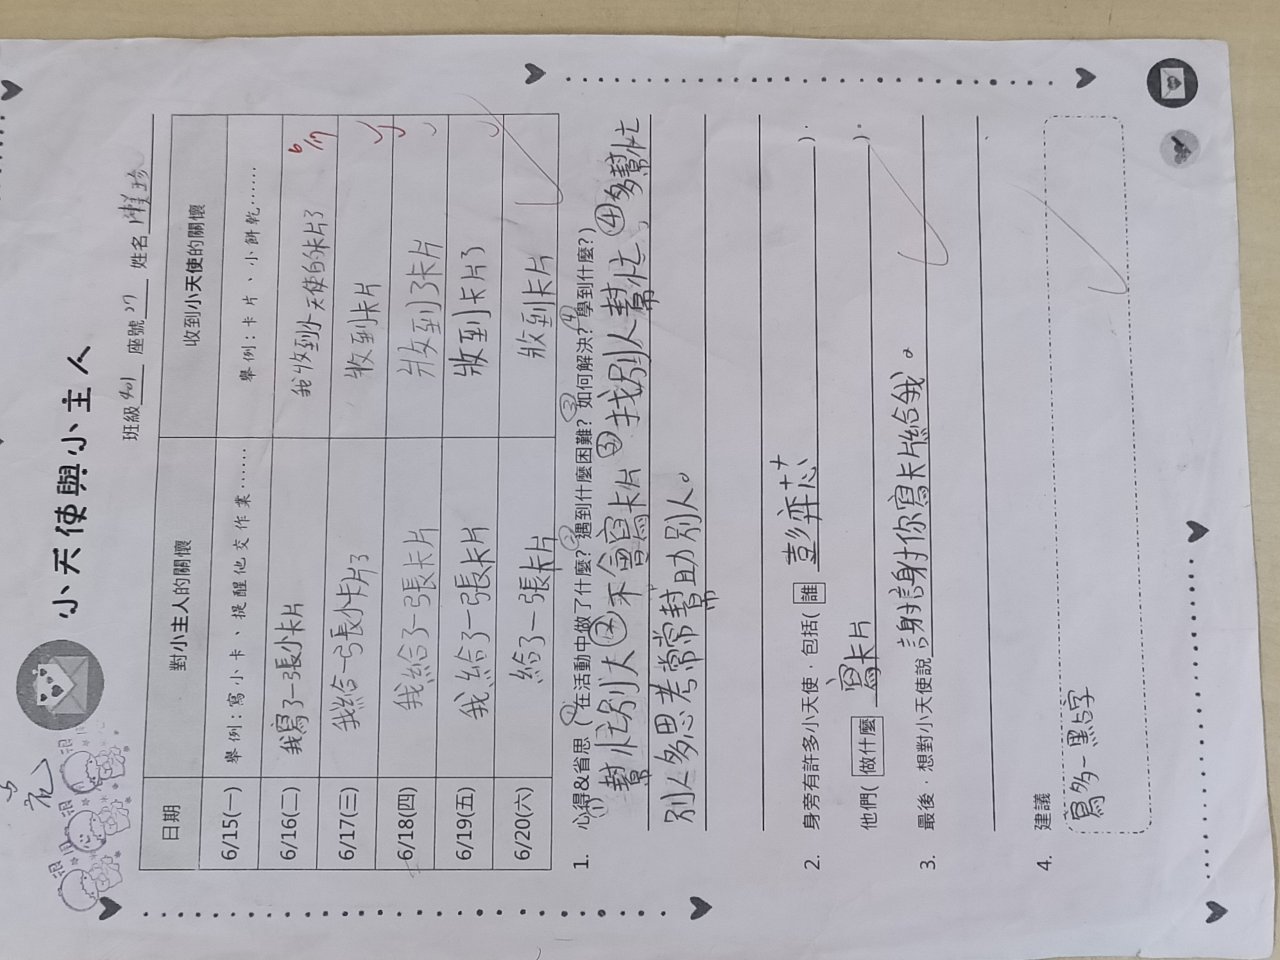 小天使與小主人
班級 401 座號 27 姓名
日期 對小主人的關懷 收到小天使的關懷
6/15(一) 舉例：寫小卡、提醒他交作業…… 舉例：卡片、小餅乾……
6/16(二) 我寫了一張小卡片 我收到小天使的卡片了 6/17
6/17(三) 我給一張小卡片了 收到卡片
6/18(四) 我給了一張卡片 收到了卡片
6/19(五) 我給了一張卡片 收到卡片了
6/20(六) 給了一張卡片 收到卡片
1. 心得&省思 (①在活動中做了什麼?②遇到什麼困難?③如何解決?④學到什麼?)
①幫忙別人②不會寫卡片③找別人幫忙，④多幫忙
別人多思考常常幫助別人。
2. 身旁有許多小天使，包括( 誰 彭弈芯 )，
他們( 做什麼 寫卡片 )。
3. 最後，想對小天使說 謝謝你寫卡片給我。
4. 建議
寫多一點字